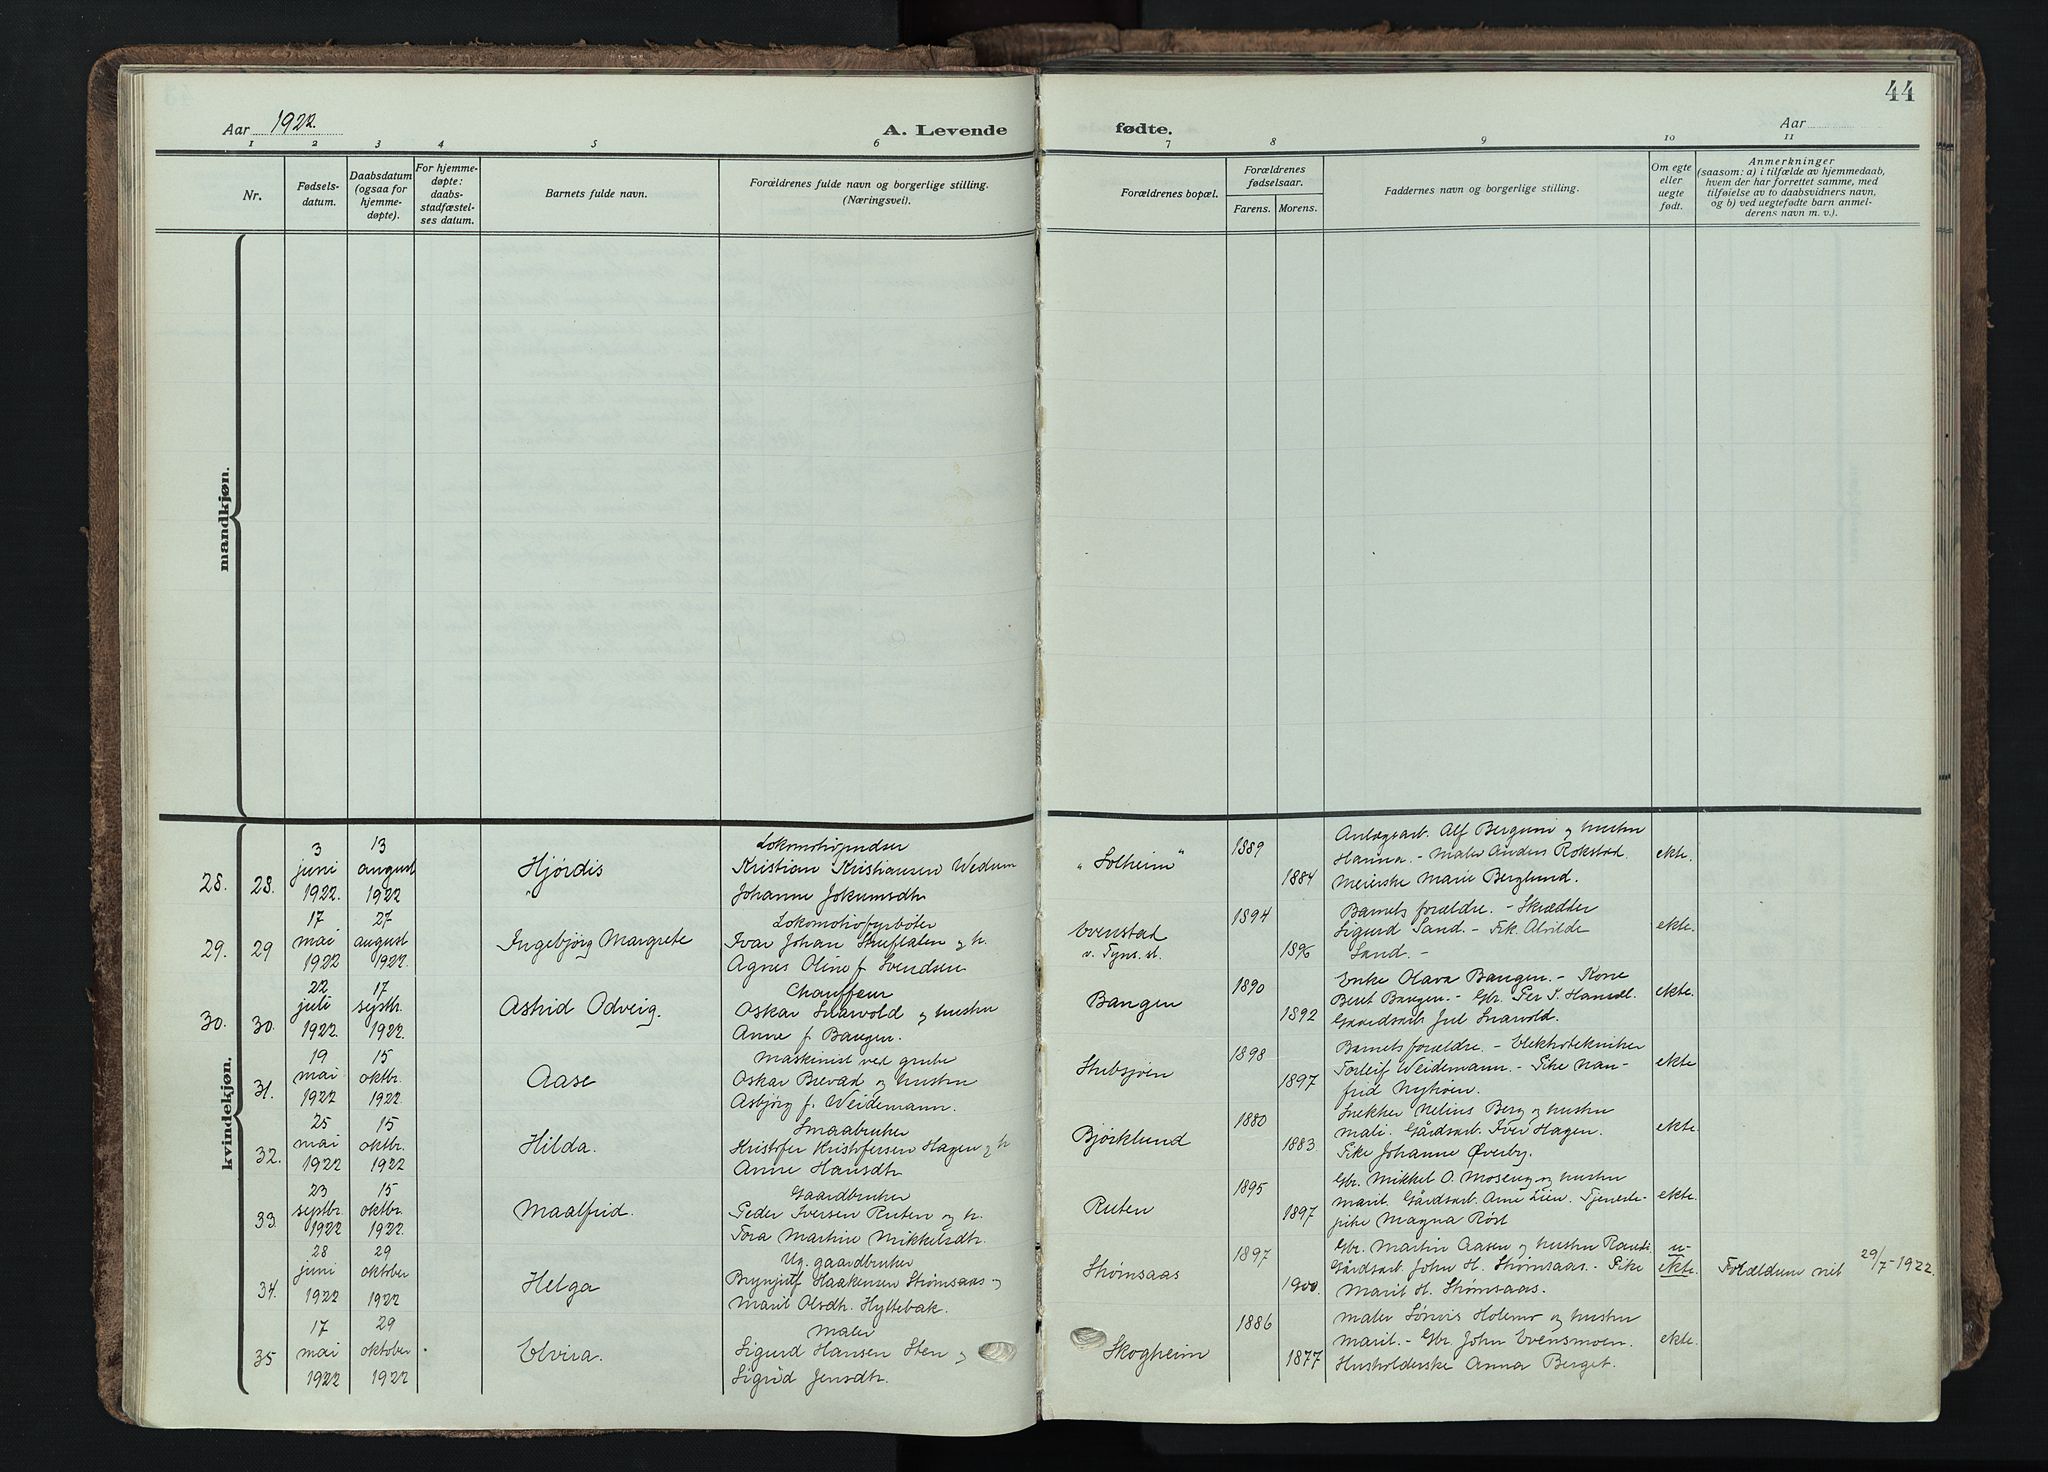 44
Aar 1922.
A. Levende
fødte.
Aar
1 2 3 4 5 6 7 8 9 10 11
Nr.
Fødsels-
datum.
Daabsdatum
(ogsaa for
hjemme-
døpte).
For hjemme-
døpte:
daabs-
stadfæstel-
ses datum.
Barnets fulde navn.
Forældrenes fulde navn og borgerlige stilling.
(Næringsvei).
Forældrenes bopæl.
Forældrenes
fødselsaar.
Farens. Morens.
Faddernes navn og borgerlige stilling.
Om egte
eller
uegte
født.
Anmerkninger
(saasom: a) i tilfælde av hjemmedaab,
hvem der har forrettet samme, med
tilføielse av to daabsvidners navn,
og b) ved uegtefødte barn anmel-
derens navn m. v.).
mandkjøn.
kvindekjøn.
28. 28.
3
juni
1922.
13
august
1922
Hjørdis
Kristian Kristiansen Wedum
Johanne Jokumsdtr
"Solheim"
1889
1884
Anlægsarb. Alf Berguni og hustru
Hanna. - Maler Anders Rokstad.
Meierske Marie Berglund.
ekte.
29. 29
17
mai
1922
27
august
1922.
Ingebjørg Margrete
Lokomotivfyrbøter
Ivar Johan Stuflaten og h.
Agnes Oline f. Svendsen
Evenstad
v. Tyns. st.
1894
1896
Barnets forældre. - Skrædder
Sigurd Sand. - Frk. Alvilde
Sand. -
ekte.
30. 30.
22
juli
1922.
17
septbr.
1922.
Astrid Odveig.
Chauffeur
Oskar Snarvold og hustru
Anne f. Bangen.
Bangen
1890
1892
Enke Olava Bangen. - Kone
Berit Bangen. - Gbr. Per J. Hansæl.
Gaardsarb. Jul Snarvold.
ekte.
31.
19
mai
1922
15
oktbr.
1922.
Aase
Maskinist ved grube
Oskar Brevad og hustru
Asbjørg f. Weidemann.
Stubsjøen
1898
1897
Barnets forældre. - Elektrotekniker
Torleif Weidemann. - Pike Nan-
frid Nyhøen.
ekte
32.
25
mai
1922
15
oktbr.
1922
Hilda.
Smaabruker
Kristofer Kristofersen Hagen og h
Anne Hansdtr
Bjørklund
1880
1883.
Snekker Nelius Berg og hustru
Mali. Gårdsarb. Iver Hagen.
Pike Johanne Øverby.
ekte.
33.
23
septbr.
1922
15
oktbr.
1922.
Maalfrid.
Gaardbruker
Peder Iversen Ruten og h.
Tora Martine Mikkelsdtr.
Ruten
1895
1897
Gbr. Mikkel O. Moseng og hustru
Marit. Gårdsarb. Arne Lien. Tjeneste-
pike Magna Røst
ekte.
34.
28
juni
1922
29
oktober
1922
Helga
Ug. gaardbruker
Brynjulf Haakensen Strømsaas og
Marit Olsdtr. Hyttebak.
Strømsaas
1897
1900.
Gbr. Martin Aasen og hustru Randi
Gårdsarb. John H. Strømsaas. - Pike
Marit H. Strømsaas.
u-
ekte.
Forældrene viet 29/7-1922.
35
17
mai
1922
29
oktober
1922
Elvira.
Maler
Sigurd Hansen Sten og
Sigrid Jensdtr.
Skogheim
1886
1877
Maler Hol og hustru
Marit. - Gbr. John Evensmoen.
Husholderske Anna Berget.
ekte.